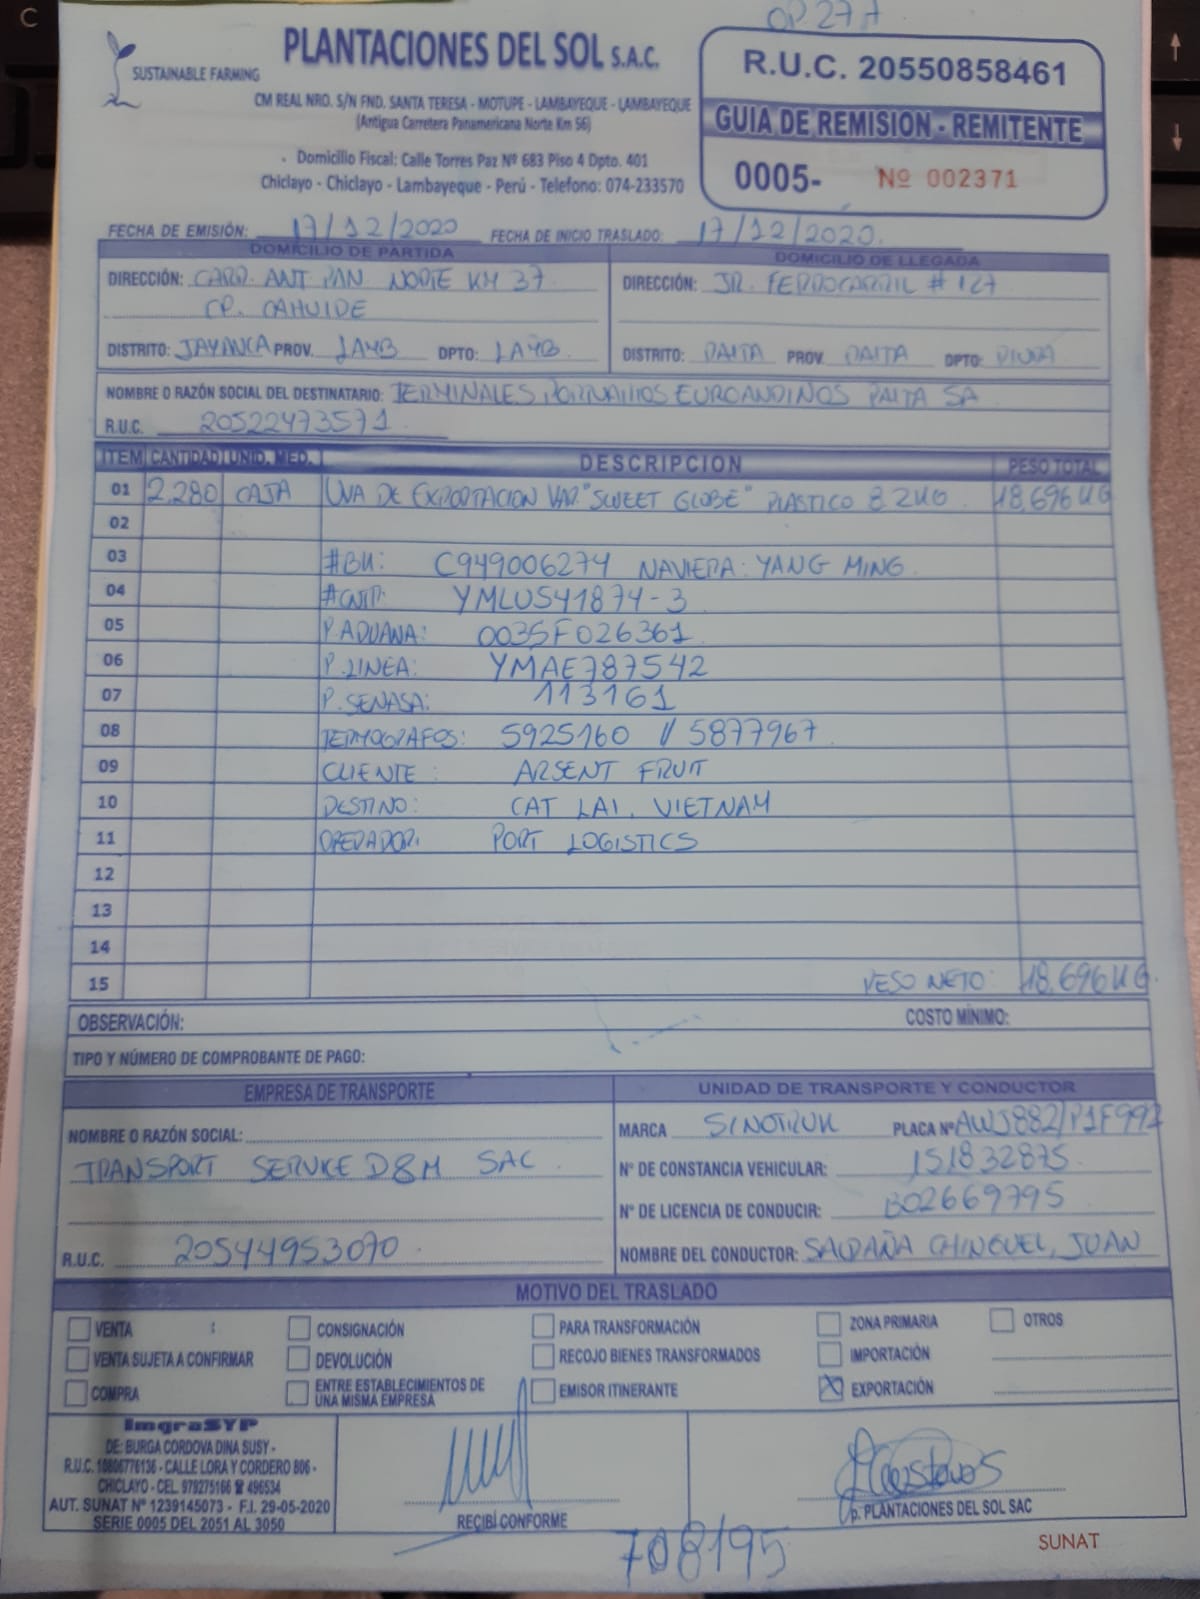 C
OP 277
SUSTAINABLE FARMING
PLANTACIONES DEL SOL S.A.C.
CM REAL NRO. S/N FND. SANTA TERESA - MOTUPE - LAMBAYEQUE - LAMBAYEQUE
(Antigua Carretera Panamericana Norte Km 56)
Domicilio Fiscal: Calle Torres Paz Nº 683 Piso 4 Dpto. 401
Chiclayo - Chiclayo - Lambayeque - Perú - Telefono: 074-233570
R.U.C. 20550858461
GUIA DE REMISION - REMITENTE
0005- Nº 002371
FECHA DE EMISIÓN: 17/12/2020 FECHA DE INICIO TRASLADO: 17/12/2020.
DOMICILIO DE PARTIDA
DIRECCIÓN: CARR. ANT PAN NORTE KM 37
CP. CAHUIDE
DISTRITO: JAYANCA PROV. LAMB DPTO: LAMB.
DOMICILIO DE LLEGADA
DIRECCIÓN: JR. FERROCARRIL # 127
DISTRITO: PAITA PROV. PAITA DPTO: PIURA
NOMBRE O RAZÓN SOCIAL DEL DESTINATARIO: TERMINALES PORTUARIOS EUROANDINOS PAITA SA
R.U.C. 20522473571
ITEM CANTIDAD UNID. MED. DESCRIPCION PESO TOTAL
01 2,280 CAJA UVA DE EXPORTACION VAR. "SWEET GLOBE" PLASTICO 8.2KG. 18,696 KG
02
03 #BK: C949006274 NAVIERA: YANG MING.
04 #CNTR: YMLU541874-3
05 P. ADUANA: 0035F026361
06 P. LINEA: YMAE787542
07 P. SENASA: 113161
08 TERMOGRAFOS: 5925160 // 5877967
09 CLIENTE: ARSENT FRUIT
10 DESTINO: CAT LAI, VIETNAM
11 OPERADOR: PORT LOGISTICS
12
13
14
15 PESO NETO: 18,696 KG.
OBSERVACIÓN: COSTO MÍNIMO:
TIPO Y NÚMERO DE COMPROBANTE DE PAGO:
EMPRESA DE TRANSPORTE
NOMBRE O RAZÓN SOCIAL:
TRANSPORT SERVICE D&M SAC.
R.U.C. 20544953070.
UNIDAD DE TRANSPORTE Y CONDUCTOR
MARCA SINOTRUK PLACA Nº AWJ882/P1F992
Nº DE CONSTANCIA VEHICULAR: 151832875.
Nº DE LICENCIA DE CONDUCIR: B02669795
NOMBRE DEL CONDUCTOR: SALDAÑA CHINGUEL, JUAN
MOTIVO DEL TRASLADO
VENTA CONSIGNACIÓN PARA TRANSFORMACIÓN ZONA PRIMARIA OTROS
VENTA SUJETA A CONFIRMAR DEVOLUCIÓN RECOJO BIENES TRANSFORMADOS IMPORTACIÓN
COMPRA ENTRE ESTABLECIMIENTOS DE UNA MISMA EMPRESA EMISOR ITINERANTE X EXPORTACIÓN
ImgraSYP
DE: BURGA CORDOVA DINA SUSY -
R.U.C. 10806776136 - CALLE LORA Y CORDERO 806 -
CHICLAYO - CEL. 979275166 ☎ 496534
AUT. SUNAT Nº 1239145073 - F.I. 29-05-2020
SERIE 0005 DEL 2051 AL 3050
RECIBÍ CONFORME
p. PLANTACIONES DEL SOL SAC
708195
SUNAT